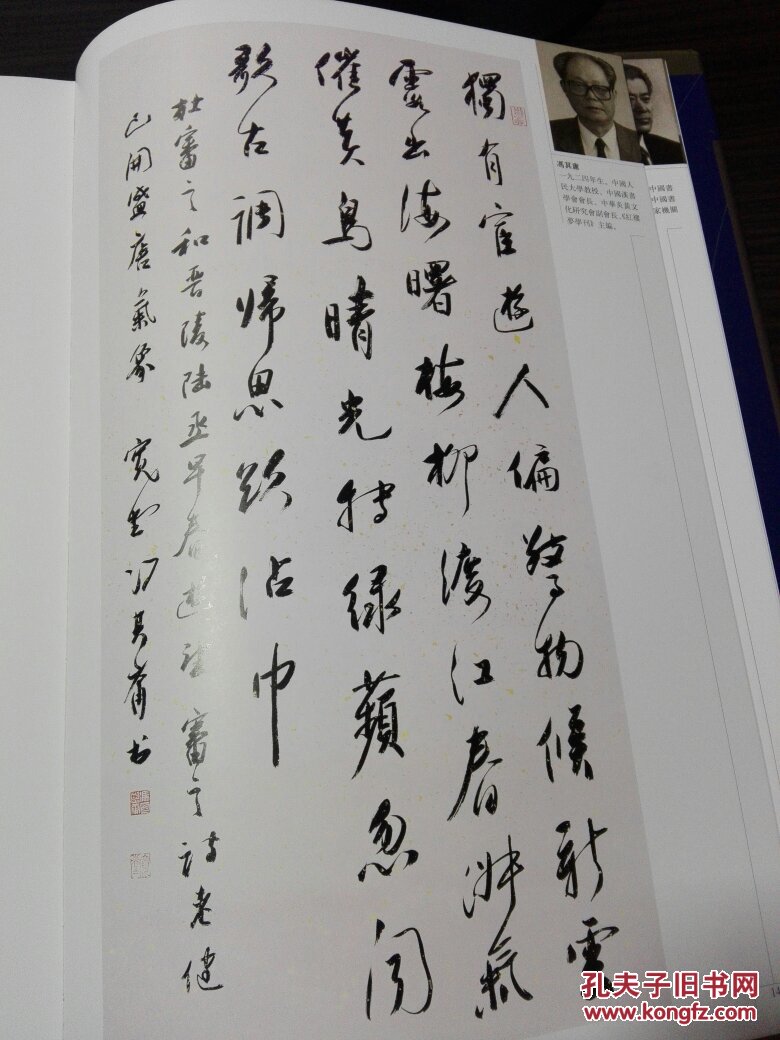 獨有宦遊人偏驚物候新雲
霞出海曙梅柳渡江春淑氣
催黃鳥晴光轉綠蘋忽聞
歌古調歸思欲沾巾
杜審言和晉陵陸丞早春遊望 審言詩老健
已開盛唐氣象 寬堂馮其庸书
馮其庸
一九二四年生，中國人
民大學教授、中國漢畫
學會會長、中華炎黃文
化研究會副會長、《紅樓
夢學刊》主編。
中國書
中國書
家機關
孔夫子旧书网
www.kongfz.com